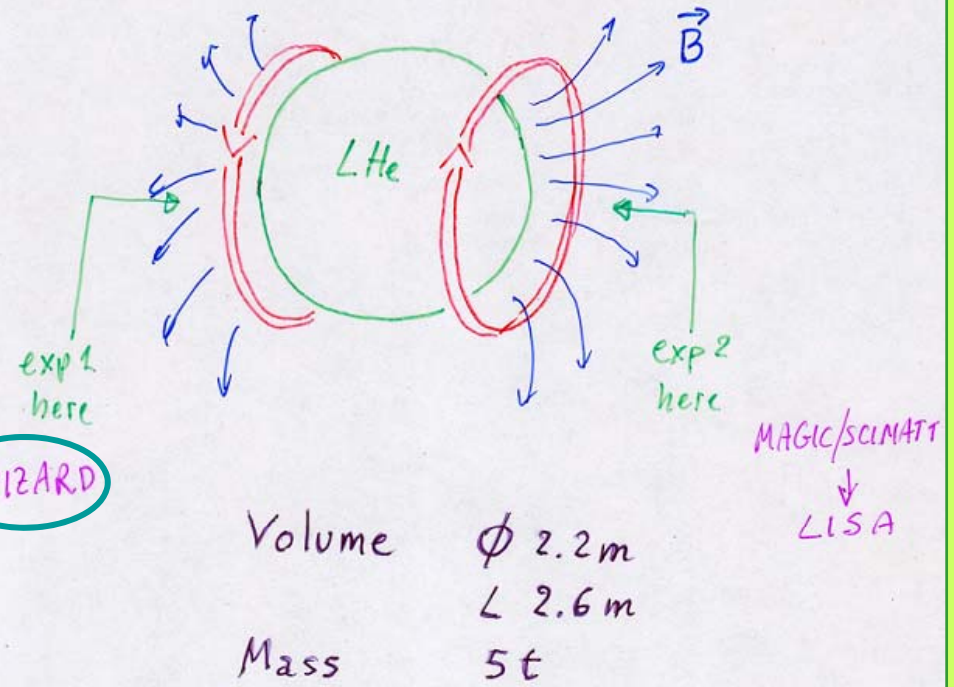 B
LHe
exp 1
here
exp 2
here
MAGIC/SCIMATT
LISA
IZARD
Volume Ø 2.2 m
L 2.6 m
Mass 5 t